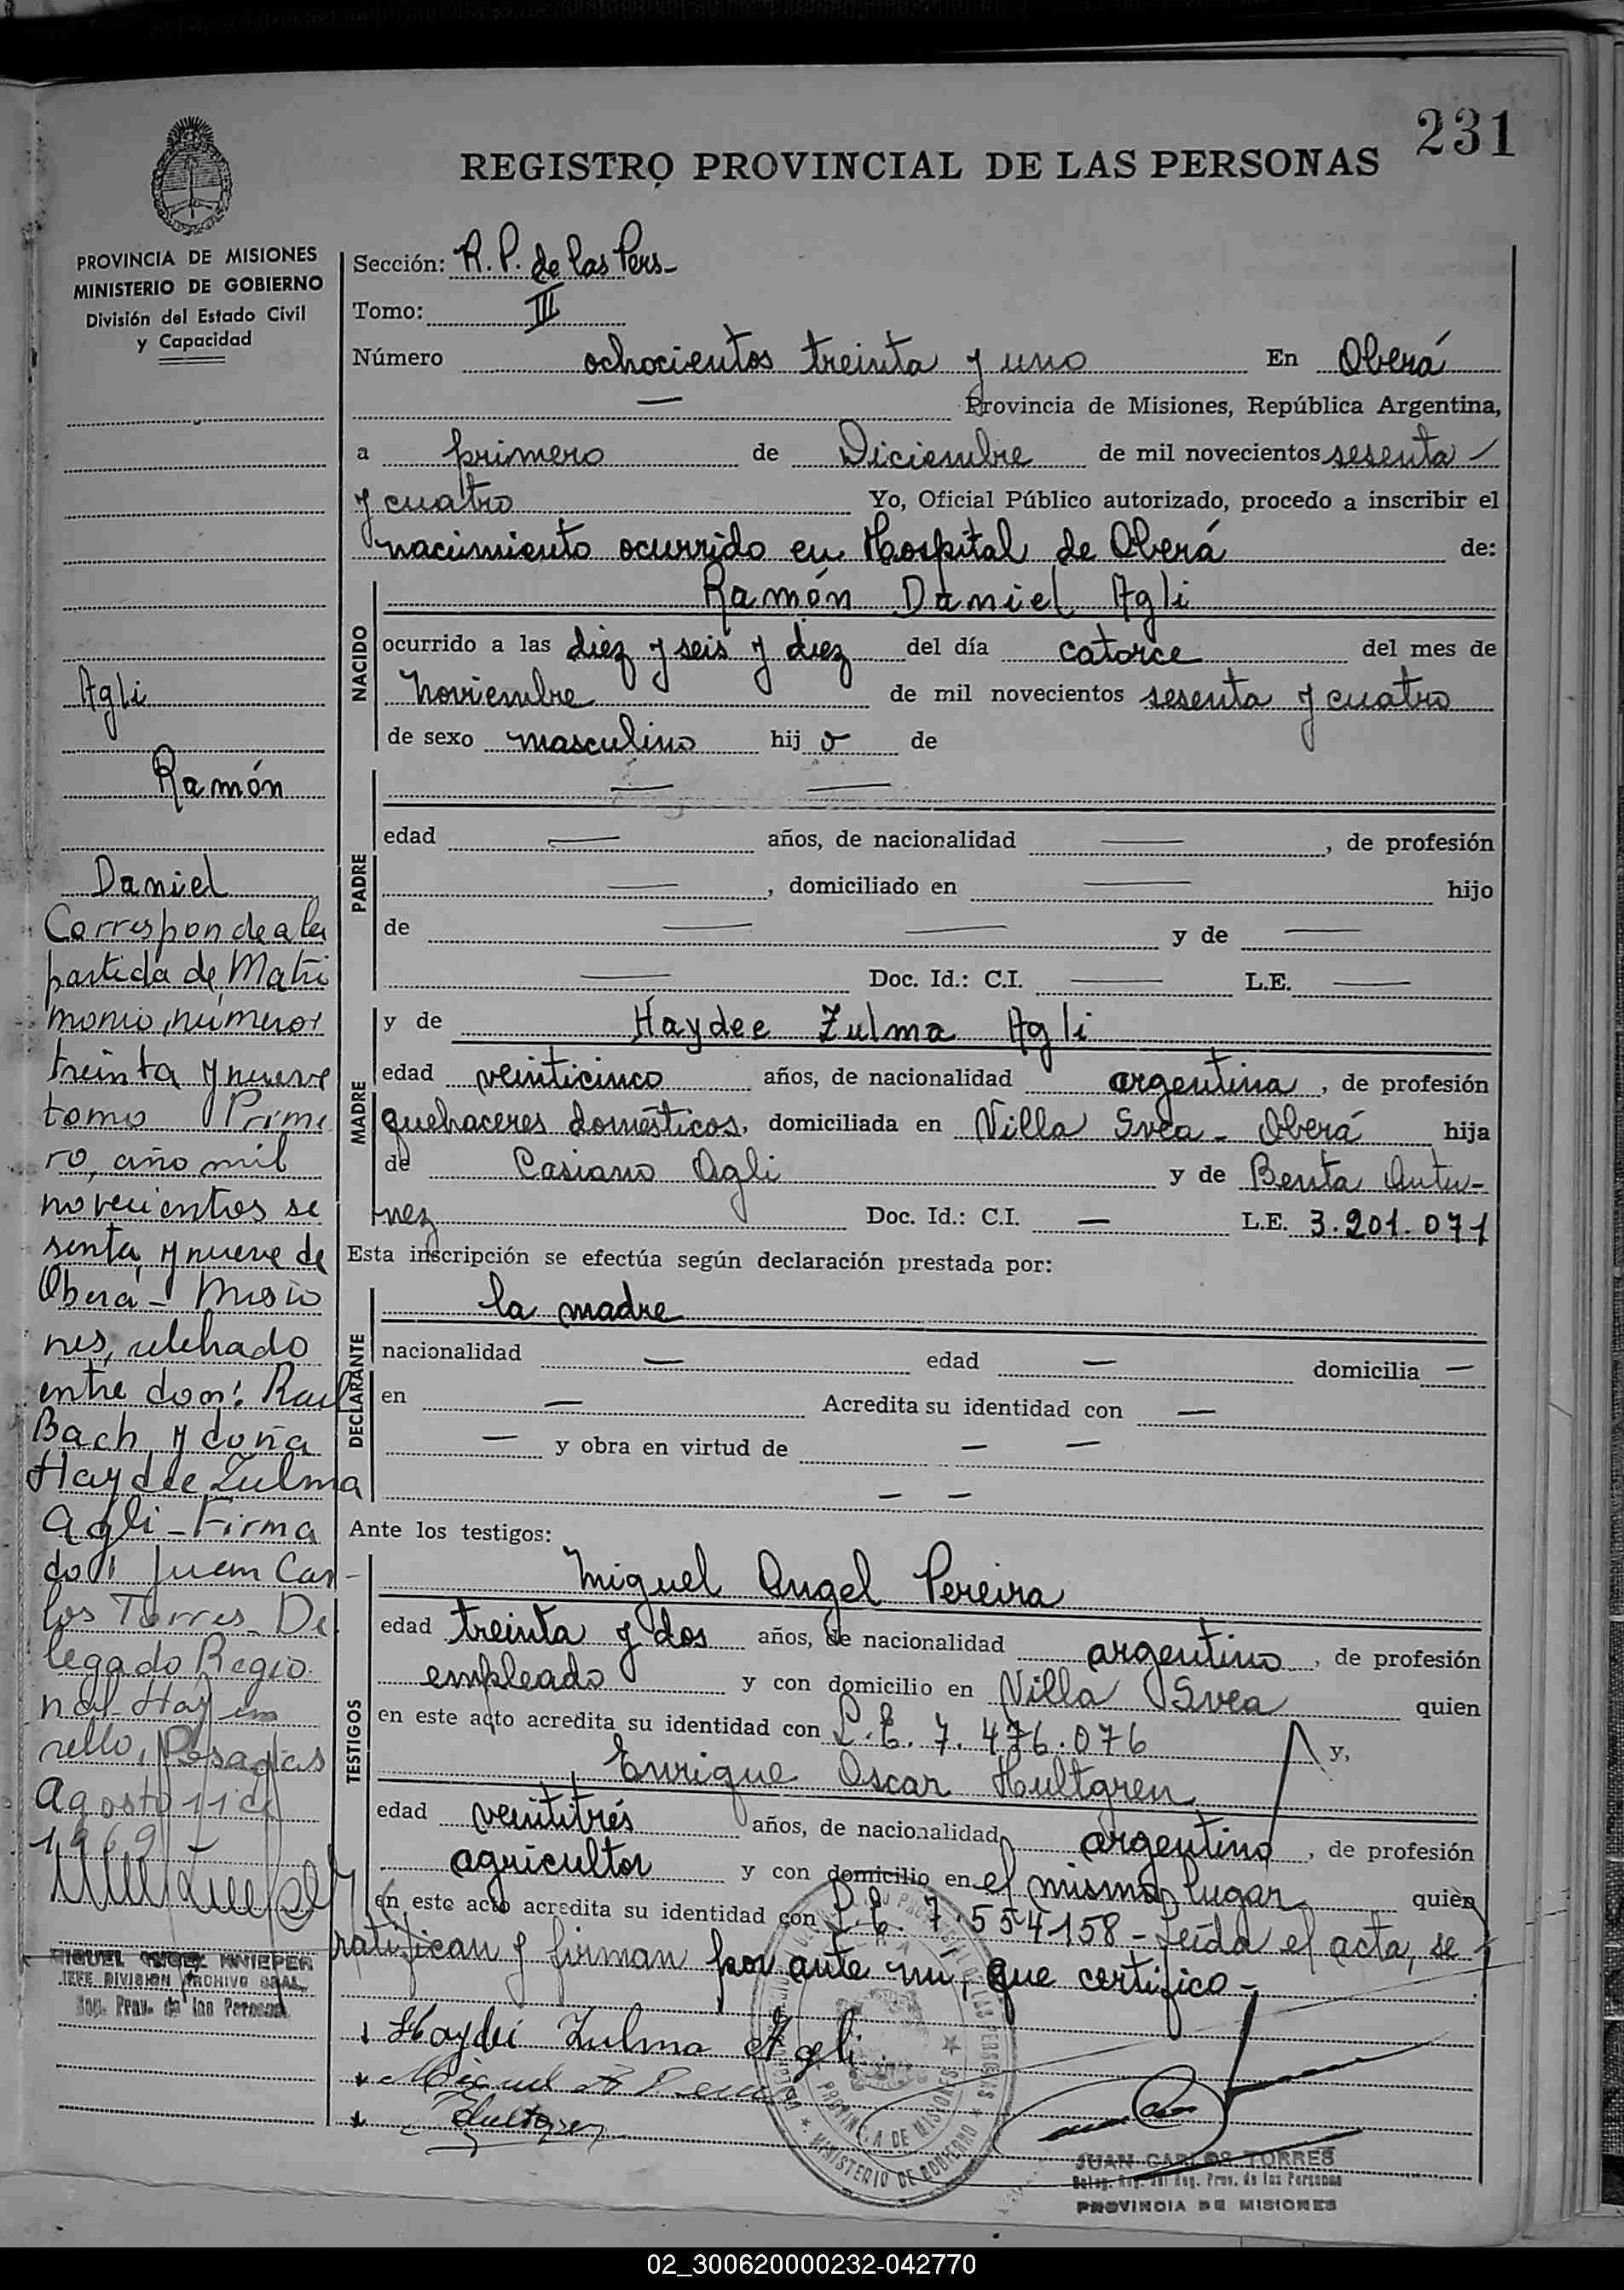 231
REGISTRO PROVINCIAL DE LAS PERSONAS
PROVINCIA DE MISIONES
MINISTERIO DE GOBIERNO
División del Estado Civil
y Capacidad
Agli
Ramón
Daniel
Corresponde a la
partida de Matri
monio, número
treinta y nueve
tomo Prime
ro, año mil
novecientos se
senta y nueve de
Oberá - Misio
nes, celebrado
entre don: Raul
Bach y doña
Haydee Zulma
Agli - Firma
do: Juan Car-
los Torres - De
legado Regio
nal - Hay un
sello, Posadas
Agosto 11 de
1969 -
MIGUEL ANGEL KNIEPER
JEFE DIVISION ARCHIVO GRAL.
Reg. Prov. de las Personas
Sección: R. P. de las Pers-
Tomo: III
Número ochocientos treinta y uno En Oberá
— Provincia de Misiones, República Argentina,
a primero de Diciembre de mil novecientos sesenta
y cuatro Yo, Oficial Público autorizado, procedo a inscribir el
nacimiento ocurrido en Hospital de Oberá de:
NACIDO
Ramón Daniel Agli
ocurrido a las diez y seis y diez del día catorce del mes de
Noviembre de mil novecientos sesenta y cuatro
de sexo masculino hij o de
PADRE
— —
edad — años, de nacionalidad —, de profesión
—, domiciliado en — hijo
de — — y de —
— Doc. Id.: C.I. — L.E. —
MADRE
y de Haydee Zulma Agli
edad veinticinco años, de nacionalidad argentina, de profesión
quehaceres domésticos, domiciliada en Villa Svea - Oberá hija
de Casiano Agli y de Benta Antu-
nez Doc. Id.: C.I. — L.E. 3.201.071
Esta inscripción se efectúa según declaración prestada por:
DECLARANTE
la madre
nacionalidad — edad — domicilia —
en — Acredita su identidad con —
— y obra en virtud de — —
— —
Ante los testigos:
TESTIGOS
Miguel Angel Pereira
edad treinta y dos años, de nacionalidad argentino, de profesión
empleado y con domicilio en Villa Svea quien
en este acto acredita su identidad con L.E. 7.476.076 y,
Enrique Oscar Hultgren
edad veintitrés años, de nacionalidad argentino, de profesión
agricultor y con domicilio en el mismo lugar quien
en este acto acredita su identidad con L.E. 7.554158 - Leída el acta, se
ratifican y firman por ante mi, que certifico -
Haydeé Zulma Agli
Miguel A Pereira
Hultgren
PROVINCIA DE MISIONES
MINISTERIO DE GOBIERNO
JUAN CARLOS TORRES
Deleg. Reg. del Reg. Prov. de las Personas
PROVINCIA DE MISIONES
02_300620000232-042770